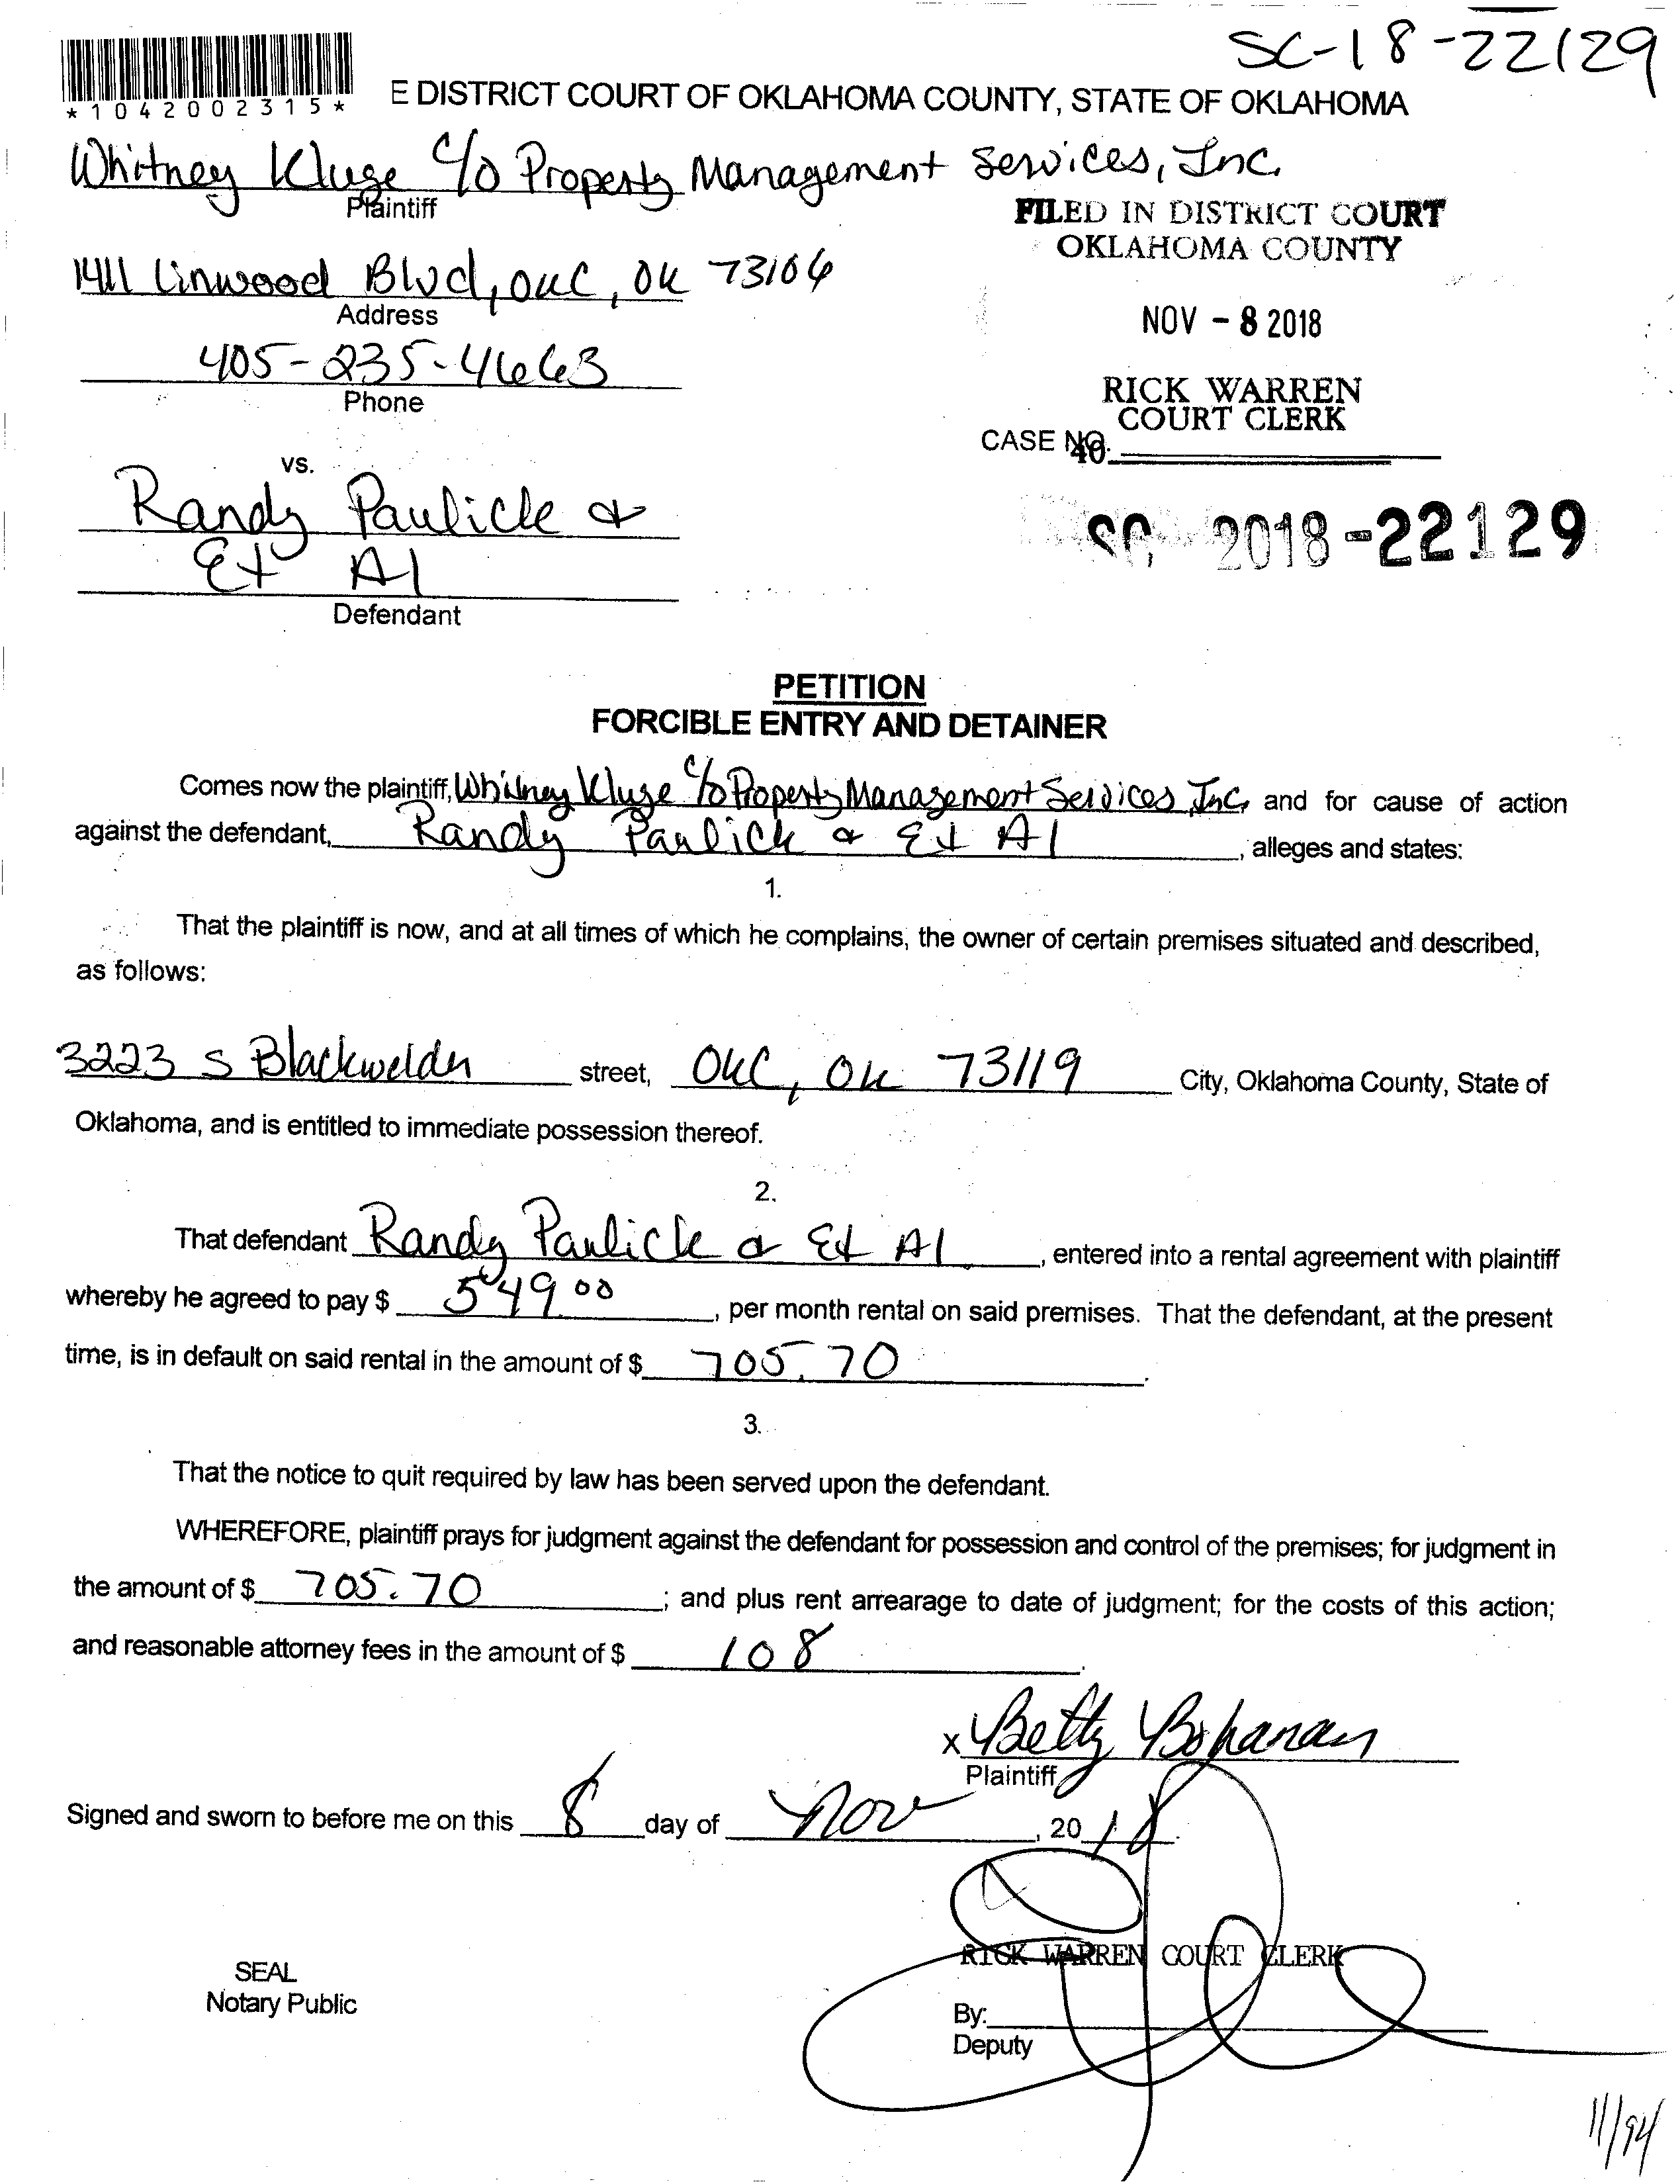 SC-18-22129
*1042002315*
E DISTRICT COURT OF OKLAHOMA COUNTY, STATE OF OKLAHOMA
Whitney Kluge c/o Property Management Services, Inc.
Plaintiff
FILED IN DISTRICT COURT
OKLAHOMA COUNTY
1411 Linwood Blvd, OKC, OK 73106
Address
NOV - 8 2018
405-235-4663
Phone
RICK WARREN
COURT CLERK
CASE NO.
40
vs.
Randy Paulick &
Et Al
Defendant
SC 2018-22129
PETITION
FORCIBLE ENTRY AND DETAINER
Comes now the plaintiff, Whitney Kluge c/o Property Management Services, Inc, and for cause of action
against the defendant, Randy Paulick & Et Al, alleges and states:
1.
That the plaintiff is now, and at all times of which he complains, the owner of certain premises situated and described,
as follows:
3223 S Blackwelder street, OKC, OK 73119 City, Oklahoma County, State of
Oklahoma, and is entitled to immediate possession thereof.
2.
That defendant Randy Paulick & Et Al, entered into a rental agreement with plaintiff
whereby he agreed to pay $ 549 00, per month rental on said premises. That the defendant, at the present
time, is in default on said rental in the amount of $ 705.70.
3.
That the notice to quit required by law has been served upon the defendant.
WHEREFORE, plaintiff prays for judgment against the defendant for possession and control of the premises; for judgment in
the amount of $ 705.70; and plus rent arrearage to date of judgment; for the costs of this action;
and reasonable attorney fees in the amount of $ 108.
x Betty Bohanan
Plaintiff
Signed and sworn to before me on this 8 day of Nov, 20 18.
RICK WARREN COURT CLERK
SEAL
Notary Public
By:
Deputy
11/94